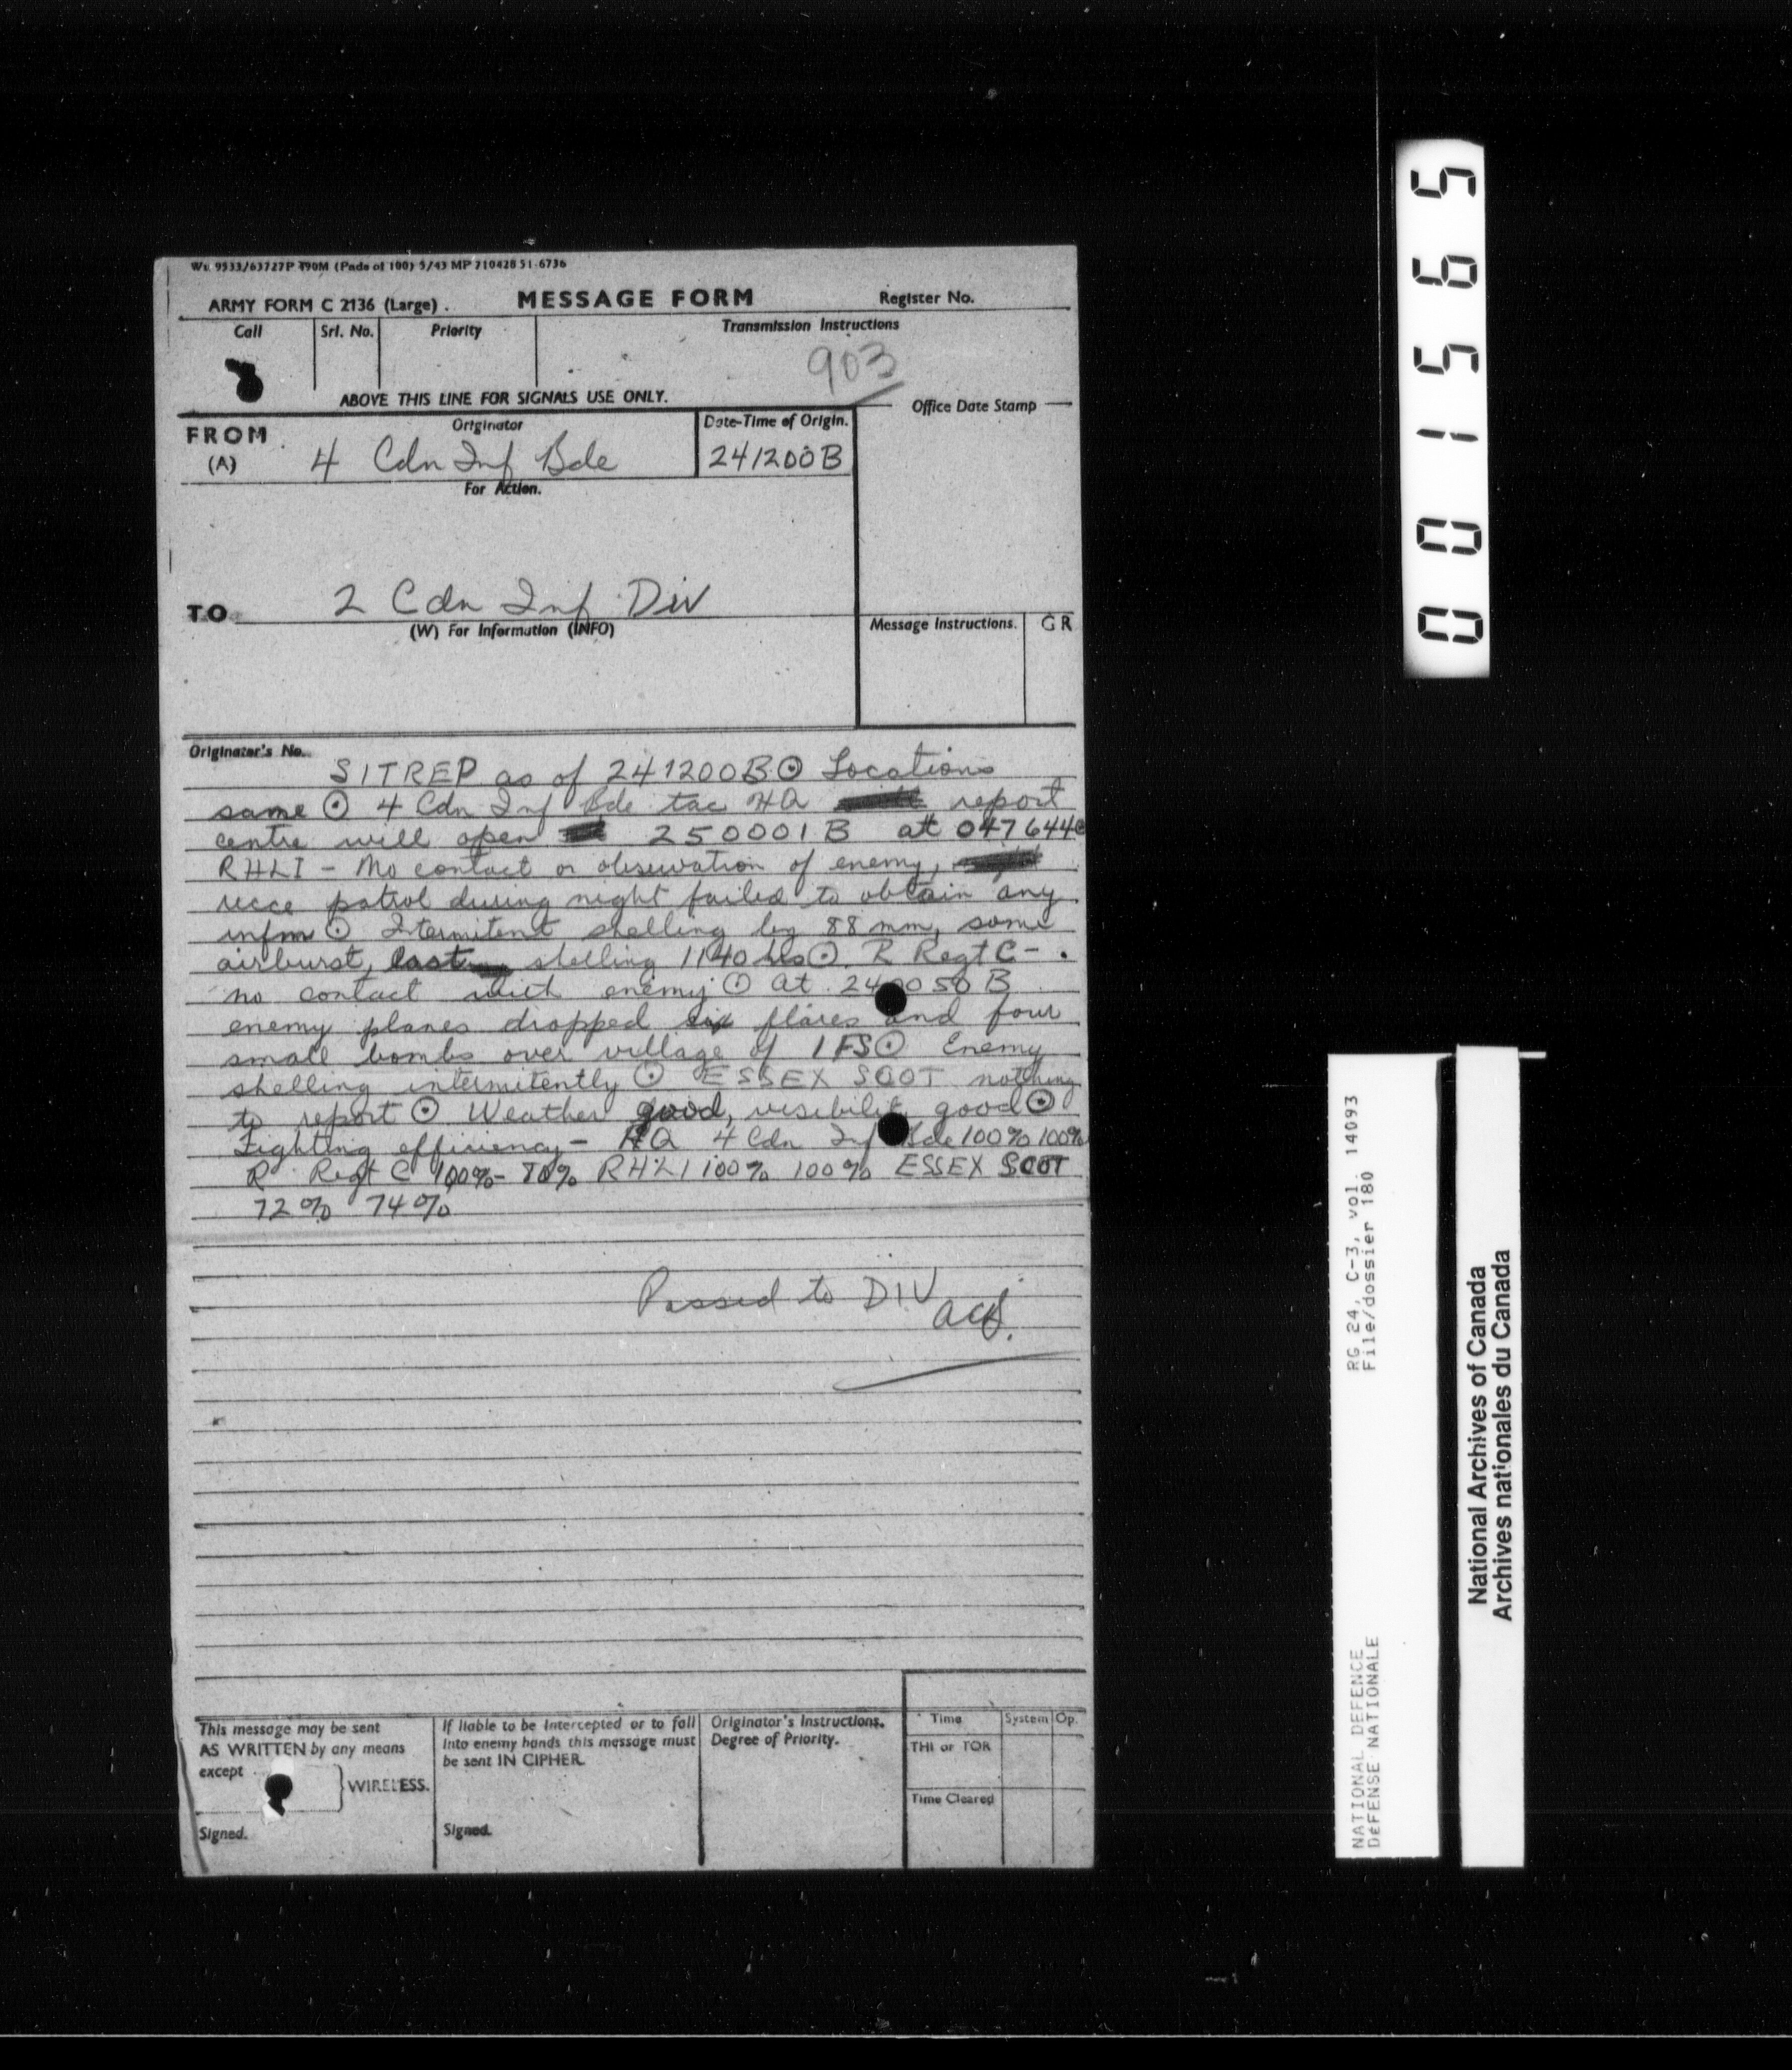 Wt. 9533/63727P 490M (Pads of 100) 5/43 MP 710428 51-6736
ARMY FORM C 2136 (Large). MESSAGE FORM Register No.
Call Srl. No. Priority Transmission Instructions
903
ABOVE THIS LINE FOR SIGNALS USE ONLY.
Office Date Stamp
FROM (A) Originator Date-Time of Origin.
4 Cdn Inf Bde 241200B
For Action.
TO 2 Cdn Inf Div
(W) For Information (INFO) Message Instructions. GR
Originator's No.
SITREP as of 241200B ⊙ Locations
same ⊙ 4 Cdn Inf Bde tac HQ report
centre will open 250001B at 047644 ⊙
RHLI - No contact or observation of enemy,
recce patrol during night failed to obtain any
infm ⊙ Intermitent shelling by 88 mm, some
airburst, last shelling 1140 hrs ⊙ R Regt C -
no contact with enemy ⊙ At 240050B
enemy planes dropped six flares and four
small bombs over village of IFS ⊙ Enemy
shelling intermitently ⊙ ESSEX SCOT nothing
to report ⊙ Weather good, visibility good ⊙
Fighting efficiency - HQ 4 Cdn Inf Bde 100% 100%
R Regt C 100% - 80% RHLI 100% 100% ESSEX SCOT
72% 74%
Passed to DIV
This message may be sent AS WRITTEN by any means except WIRELESS.
Signed.
If liable to be intercepted or to fall into enemy hands this message must be sent IN CIPHER.
Signed.
Originator's Instructions. Degree of Priority.
Time System Op.
THI or TOR
Time Cleared
001565
RG 24, C-3, vol. 14093
File/dossier 180
NATIONAL DEFENCE
DéFENSE NATIONALE
National Archives of Canada
Archives nationales du Canada